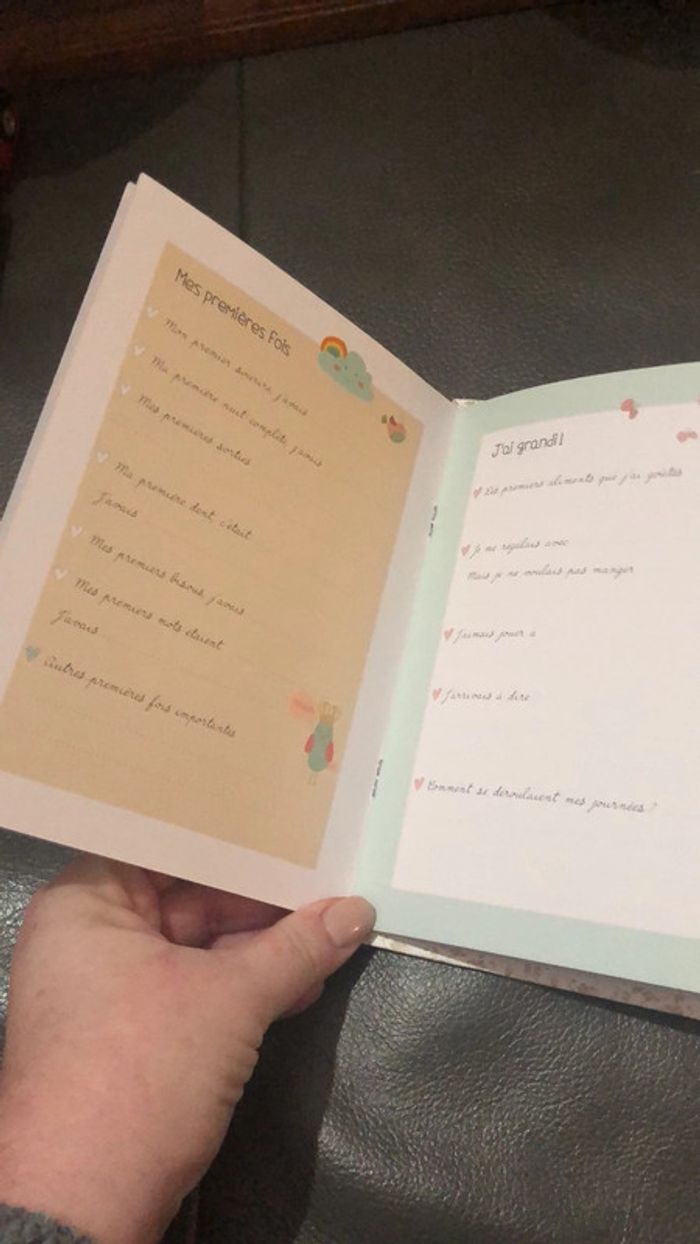 Mes premières Fois
Mon premier sourire, j'avais
Ma première nuit complète, j'avais
Mes premières sorties
Ma première dent, c'était
J'avais
Mes premiers bisous, j'avais
Mes premiers mots étaient
J'avais
Autres premières fois importantes
J'ai grandi!
Les premiers aliments que j'ai goûtés
Je ne régalais avec
Mais je ne voulais pas manger
J'aimais jouer à
J'arrivais à dire
Comment se déroulaient mes journées?